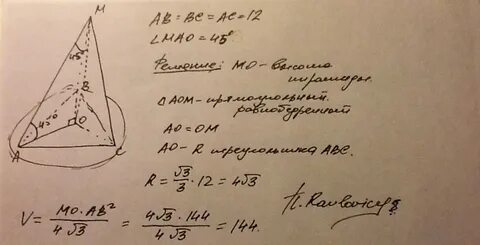 M
45°
B
45°
O
A
C
AB = BC = AC = 12
∠MAO = 45°
Решение: MO - высота
пирамиды.
△AOM - прямоугольный.
равнобедренный
AO = OM
AO - R треугольника ABC.
R = √3/3 · 12 = 4√3
V = MO · AB²/4√3 = 4√3 · 144/4√3 = 144.